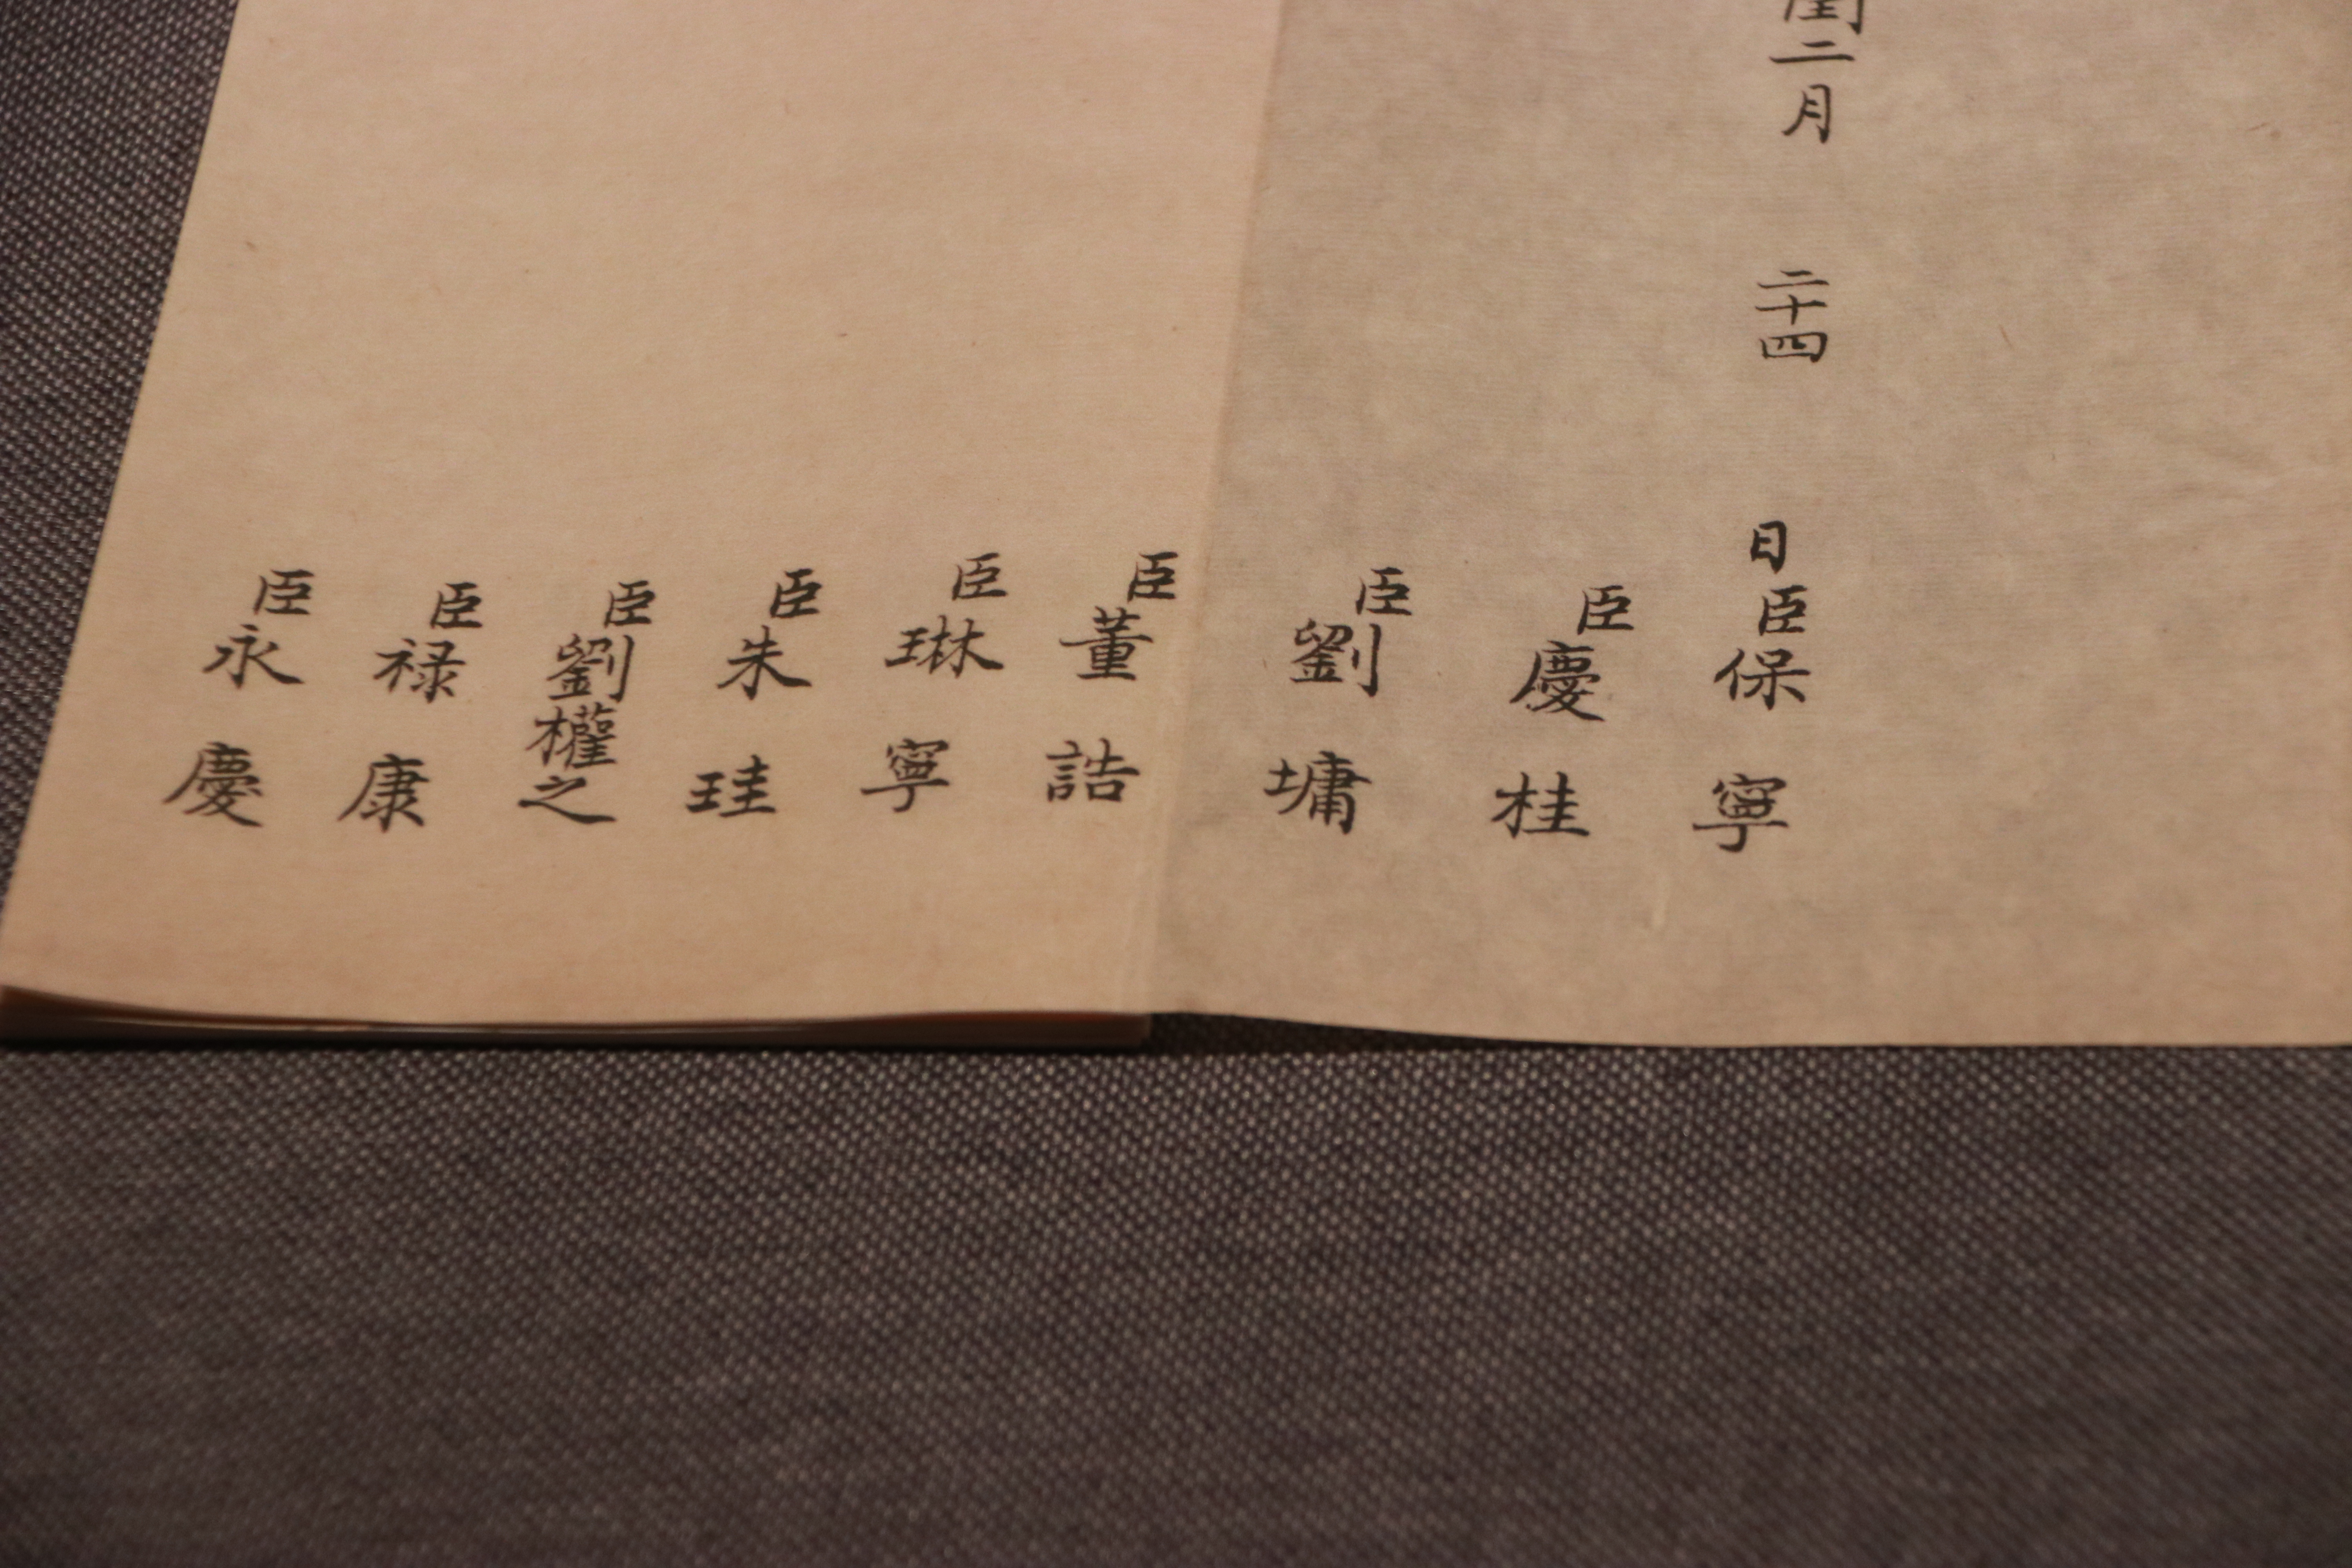 閏二月 二十四 日臣保寧
臣慶桂
臣劉墉
臣董誥
臣琳寧
臣朱珪
臣劉權之
臣祿康
臣永慶